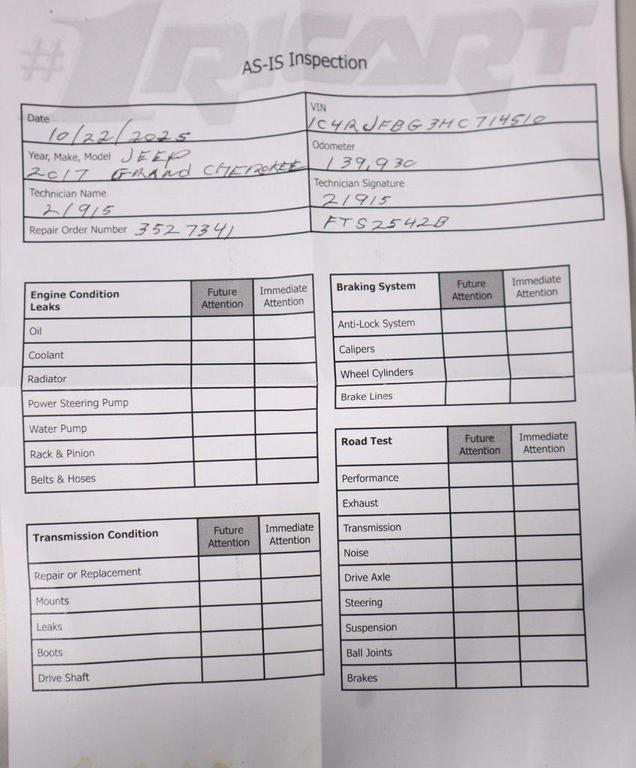 #1 RICART
AS-IS Inspection
Date
10/22/2025
VIN
1C4RJFBG3HC714510
Year, Make, Model JEEP
2017 GRAND CHEROKEE
Odometer
139,930
Technician Name
21915
Technician Signature
21915
Repair Order Number 3527341
FTS2542B
Engine Condition Future Immediate
Leaks Attention Attention
Oil
Coolant
Radiator
Power Steering Pump
Water Pump
Rack & Pinion
Belts & Hoses
Transmission Condition Future Immediate
Attention Attention
Repair or Replacement
Mounts
Leaks
Boots
Drive Shaft
Braking System Future Immediate
Attention Attention
Anti-Lock System
Calipers
Wheel Cylinders
Brake Lines
Road Test Future Immediate
Attention Attention
Performance
Exhaust
Transmission
Noise
Drive Axle
Steering
Suspension
Ball Joints
Brakes